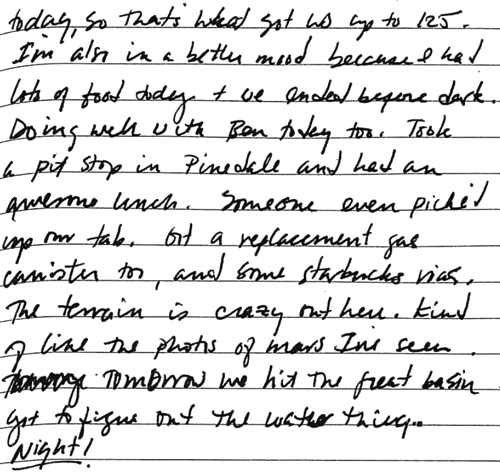 today, so that's what got us up to 125.
I'm also in a better mood because I had
lots of food today + we ended before dark.
Doing well with Ben today too. Took
a pit stop in Pinedale and had an
awesome lunch. Someone even picked
up our tab. Got a replacement gas
canister too, and some starbucks vias.
The terrain is crazy out here. Kind
of like the photos of mars I've seen.
Tomorrow we hit the great basin
got to figure out the water thing..
Night!